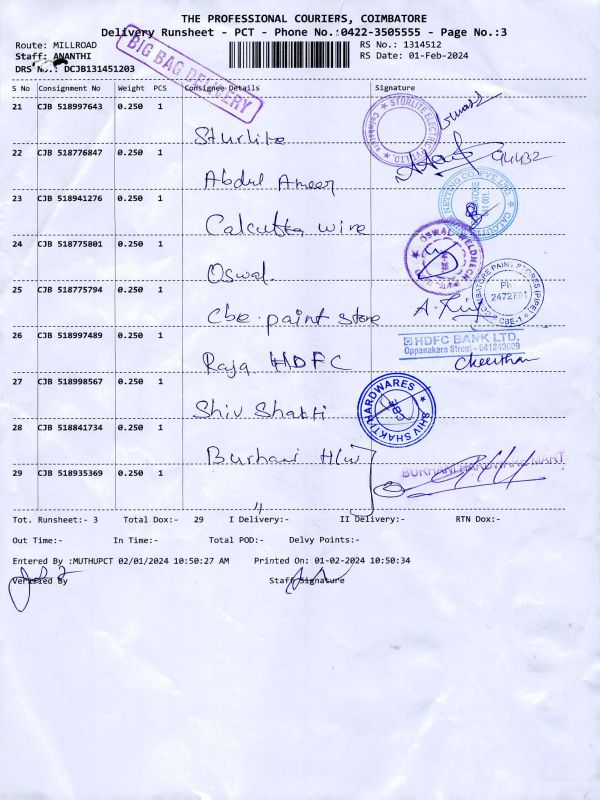 THE PROFESSIONAL COURIERS, COIMBATORE
Delivery Runsheet - PCT - Phone No.:0422-3505555 - Page No.:3
Route: MILLROAD RS No.: 1314512
Staff: ANANTHI RS Date: 01-Feb-2024
DRS No.: DCJB131451203
BIG BAG DELIVERY
S No Consignment No Weight PCS Consignee Details Signature
21 CJB 518997643 0.250 1
Sturlite
STORLITE ELECTRIC
22 CJB 518776847 0.250 1
Abdul Ameer
23 CJB 518941276 0.250 1
Calcutta wire
NETTING CO. PVT LTD. CALCUTTA
24 CJB 518775801 0.250 1
Oswal
OSWAL WELDMECH PVT.
25 CJB 518775794 0.250 1
Cbe paint store
COIMBATORE PAINT STORES (PIPE)
PH: 2472791
CBE-1
26 CJB 518997489 0.250 1
Raja HDFC
HDFC BANK LTD.
Oppanakara Street - 641240009
Cheerthan
27 CJB 518998567 0.250 1
Shiv Shakti
SHIV SHAKTI HARDWARES
28 CJB 518841734 0.250 1
Burhani H/w
BURHANI HARDWARE MART
29 CJB 518935369 0.250 1
"
Tot. Runsheet:- 3 Total Dox:- 29 I Delivery:- II Delivery:- RTN Dox:-
Out Time:- In Time:- Total POD:- Delvy Points:-
Entered By :MUTHUPCT 02/01/2024 10:50:27 AM Printed On: 01-02-2024 10:50:34
Verified By Staff Signature